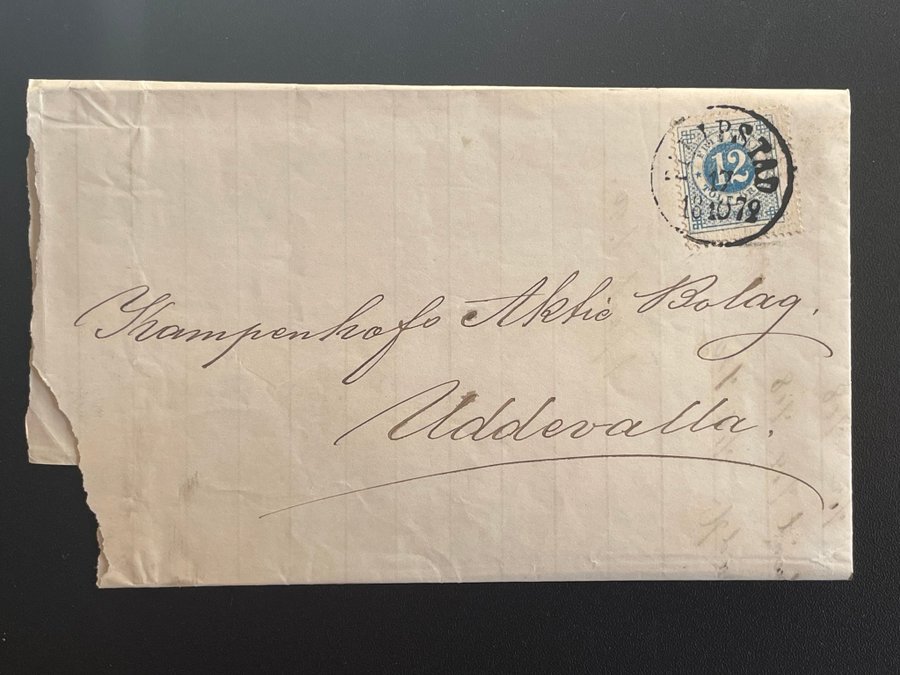 12
STAD
17
1879
Kampenhofs Aktie Bolag.
Uddevalla.